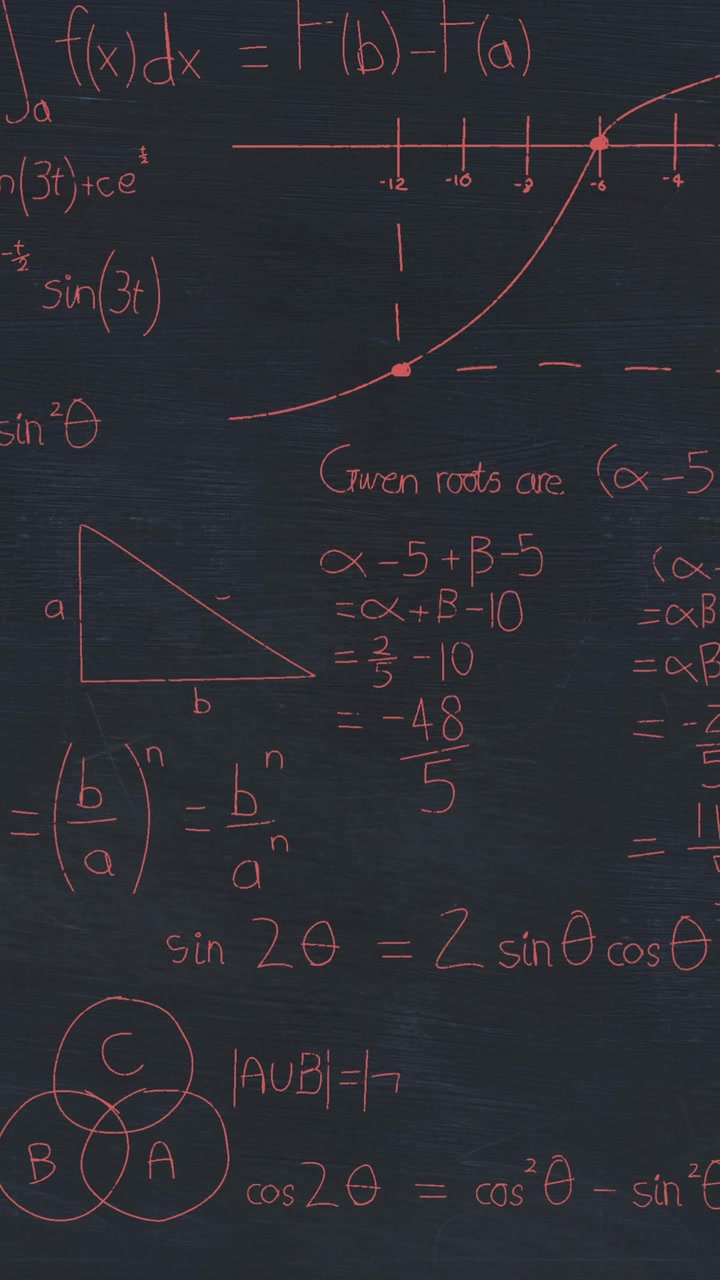 ∫ₐ f(x)dx = F(b)-F(a)
n(3t)+ce^(t/2)
-12 -10 -8 -6 -4
-t/2 sin(3t)
sin²θ
Given roots are (α-5
a
b
α-5+β-5
=α+β-10
=2/5-10
=-48/5
(α-
=αβ
=αβ
=(b/a)ⁿ = bⁿ/aⁿ
sin 2θ = 2 sinθ cosθ
C
B A
|A∪B|=|
cos2θ = cos²θ - sin²θ